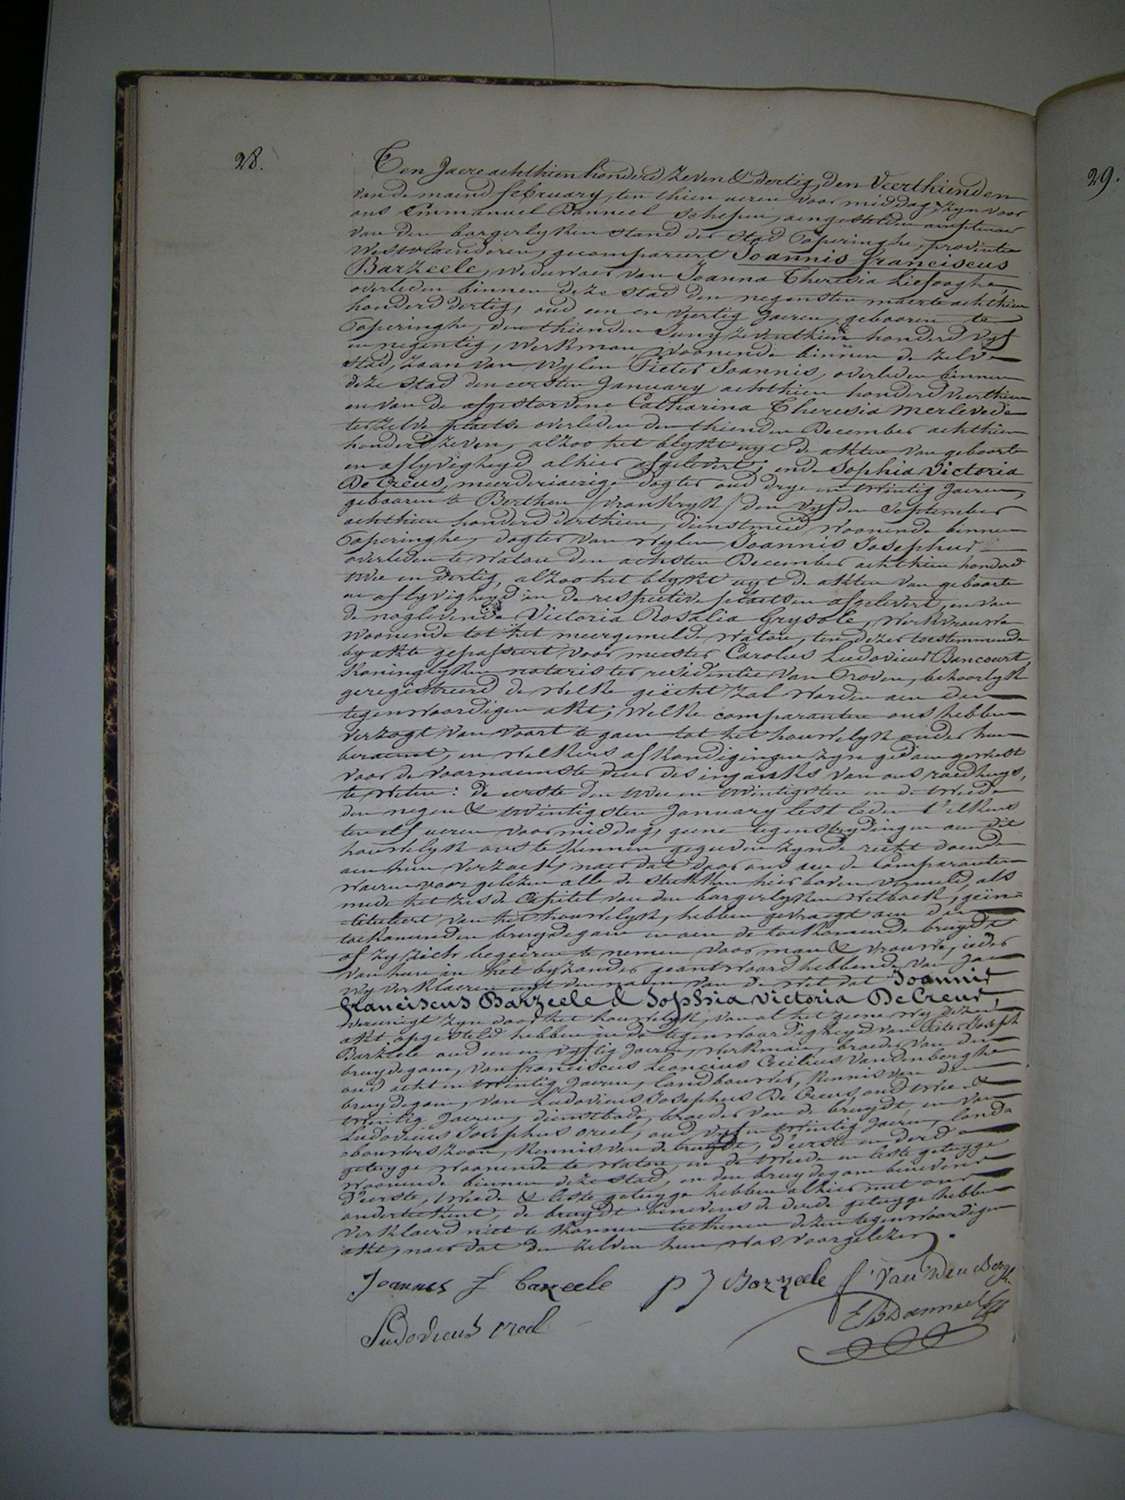 28.
29.
Ten Jaere achthien honderd zeven & dertig, den Veerthienden
van de maend february, ten thien ueren voor middag, zyn voor
ons Emmanuel Banneel Schepen, aengestelden amptenaer
van den borgerlyken stand der Stad Poperinghe, provintie
Westvlaenderen, gecompareert Joannis franciscus
Barzeele, weduwaer van Joanna Theresia Liefooghe,
overleden binnen deze stad den negensten maerte achthien
honderd dertig, oud een en veertig Jaeren, gebooren te
Poperinghe, den thienden Juny zeventhien honderd vyf
en negentig, werkman, woonende binnen de zelve
stad, zoon van wylen Pieter Joannis, overleden binnen
deze stad den eersten January achthien honderd veerthien
en van de afgestorvene Catharina Theresia Merlevede
ter zelve plaetse overleden den thienden December achthien
honderd zeven, alzoo het blykt uyt de akten van geboorte
en aflyvigheyd alhier afgelevert; ende Sophia Victoria
De Creus, meerderjaerige dogter oud drye en twintig Jaeren,
gebooren te Berthen / vrankryk / den vyfden September
achthien honderd derthien, dienstmeid, woonende binnen
Poperinghe, dogter van wylen Joannis Josephus
overleden te Watou den achsten December achthien honderd
twee en dertig, alzoo het blykt uyt de akten van geboorte
en aflyvigheyd in de respective plaetsen afgelevert, en van
de noglevende Victoria Rosalia Grysole, werkvrouwe
woonende tot het meergemelde Watou, ten dezen toestemmende
by akte gepasseert voor meester Carolus Ludovicus Bancourt,
koninglyken notaris ter residentie van Proven, behoorlyk
geregistreerd de welke gehecht zal worden aen den
tegenwoordigen akt; welke comparanten ons hebben
verzogt van voort te gaen tot het houwelyk onder hun
beraemt, en welkers afkondigingen zyn gedaen geweest
voor de voornaemste deur des ingancks van ons raedhuys,
te weten: de eerste den twee en twintigsten en de tweede
den negen & twintigsten January lest leden t'elkens
ten elf ueren voormiddag, geene tegenstrydingen aen dit
houwelyk ons te kennen gegeven zynde recht doende
aen hun verzoek, naer dat door ons aen de comparanten
waeren voorgelezen alle de stukken hier boven vermeld, als
mede het zesde Capitel van den borgerlyken wetboek, geïn-
tituleert van het houwelyk, hebben gevraegt aen den
toekomenden bruydegom en aen de toekomende bruydt
of zy zich begeiren te nemen voor man & vrouwe, ieder
van hun in het byzonder geantwoord hebbende van Jae
wy verklaeren uyt den naem van de wet dat Joannis
franciscus Barzeele & Sophia Victoria De Creus,
vereenigt zyn door het houwelyk; van al het geene wy dezen
akt opgesteld hebben in de tegenwoordigheyd van Pieter Joseph
Barzeele oud een en vyftig Jaeren, werkman, broeder van den
bruydegom, van franciscus Leoncius Cecilius Vandenberghe
oud acht en twintig Jaeren, landbouwer, kennis van den
bruydegom, van Ludovicus Josephus De Creus, oud twee &
twintig Jaeren, dienstbode, broeder van de bruydt, en van
Ludovicus Josephus Oreel, oud vyf en twintig Jaeren, landt-
bouwerszoon, kennis van de bruydt, d'eerste en derde
getuyge woonende te Watou, en de tweede en leste getuyge
woonende binnen deze stad, en den bruydegom benevens
d'eerste, tweede & leste getuyge hebben alhier met ons
onderteekent, de bruydt benevens de derde getuyge hebben
verklaerd niet te konnen teekenen dezen tegenwoordigen
akt, naer dat den zelven hun was voorgelezen.
Joannes f Barzeele p J Barzeele f Van Den Berghe
Ludovicus oreel E Banneel